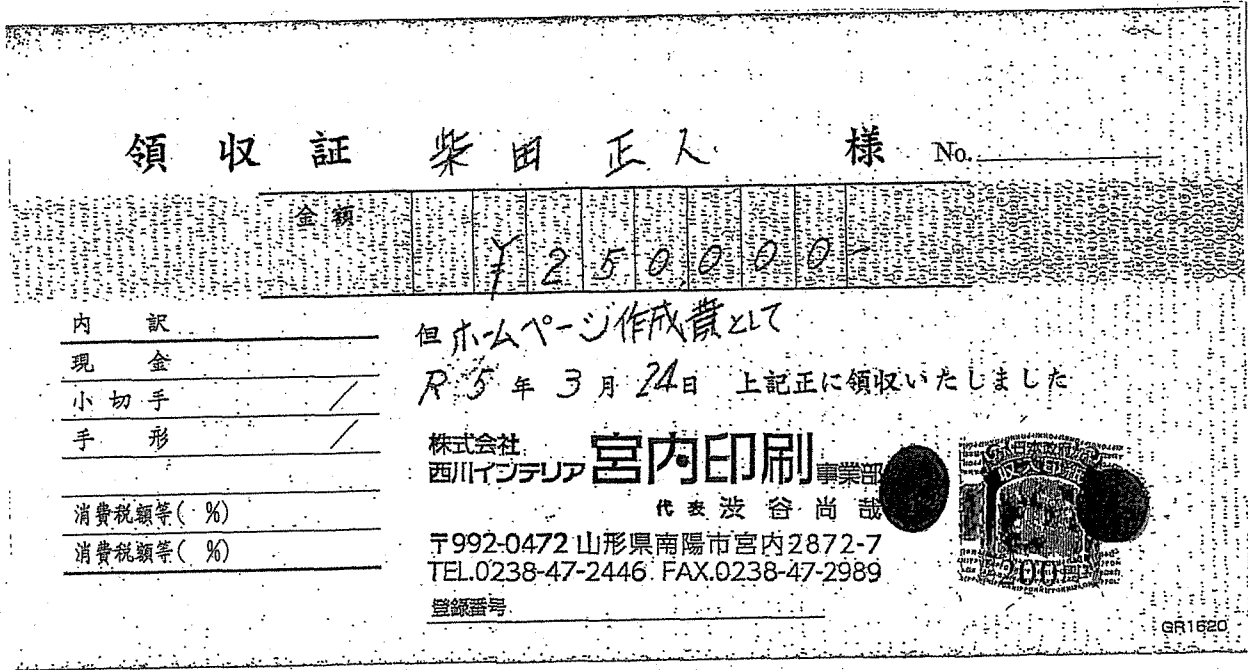 領収証 柴田 正人 様 No.
金額 ¥250,000-
内訳
現金
小切手 /
手形 /
消費税額等( %)
消費税額等( %)
但 ホームページ作成費として
R5年3月24日 上記正に領収いたしました
株式会社
西川インテリア 宮内印刷 事業部
代表 渋谷尚哉
〒992-0472 山形県南陽市宮内2872-7
TEL.0238-47-2446 FAX.0238-47-2989
登録番号
200円
GR1620